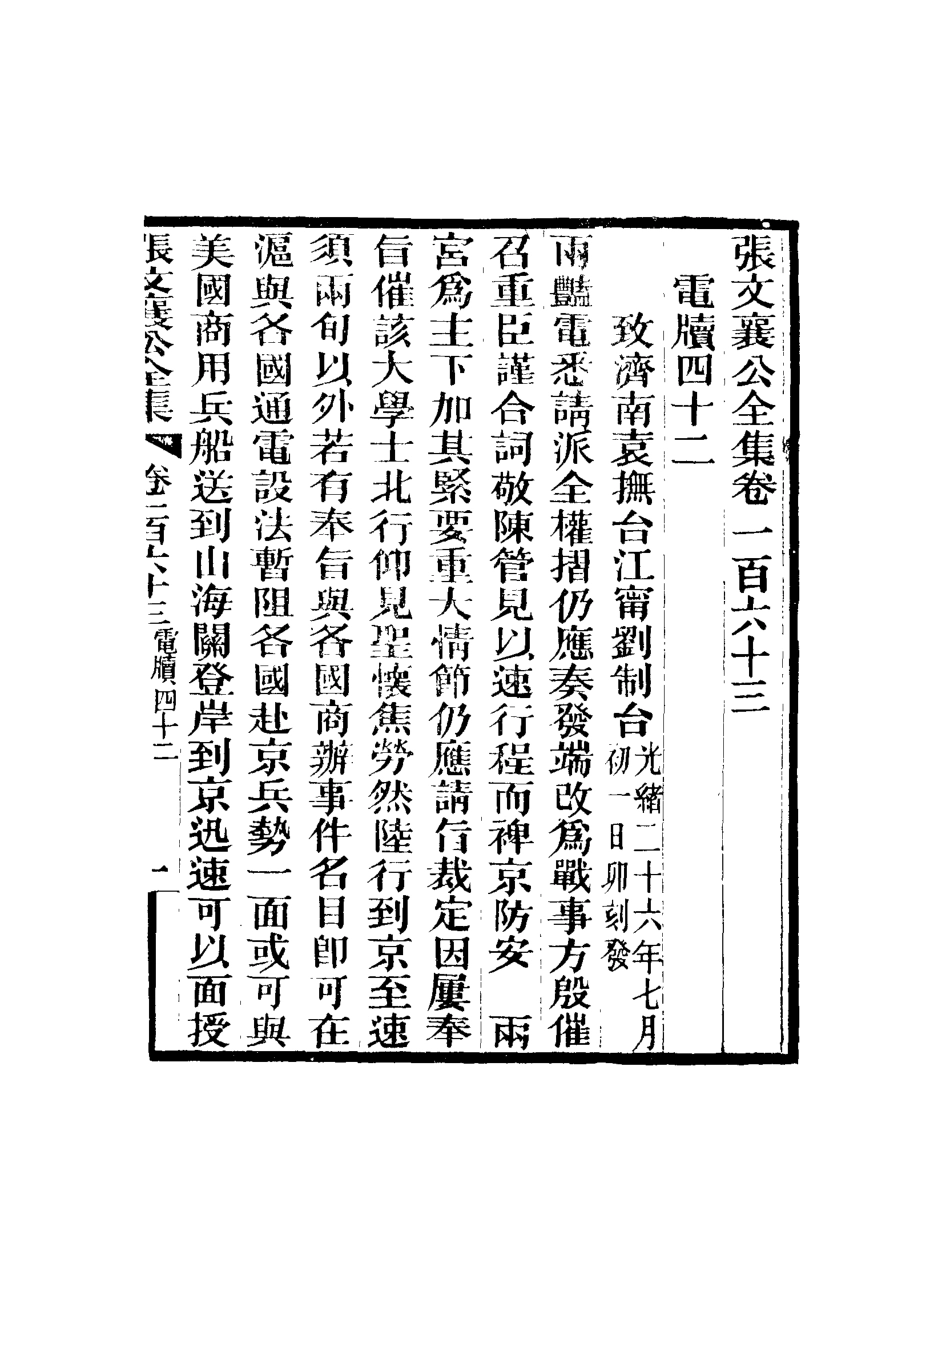 張文襄公全集卷一百六十三
電牘四十二
致濟南袁撫台江甯劉制台光緒二十六年七月
初一日卯刻發
兩豔電悉請派全權摺仍應奏發端改爲戰事方殷催
召重臣謹合詞敬陳管見以速行程而裨京防安 兩
宮爲主下加其緊要重大情節仍應請旨裁定因屢奉
旨催該大學士北行仰見聖懷焦勞然陸行到京至速
須兩旬以外若有奉旨與各國商辦事件名目卽可在
滬與各國通電設法暫阻各國赴京兵勢一面或可與
美國商用兵船送到山海關登岸到京迅速可以面授
張文襄公全集 卷一百六十三 電牘四十二 一